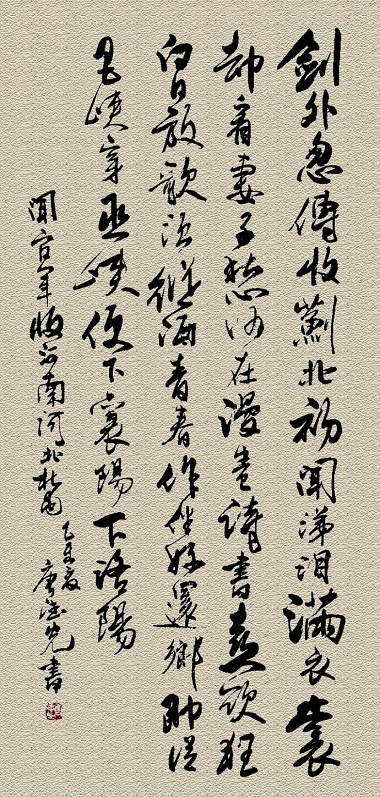 劍外忽傳收薊北初聞涕泪滿衣裳
却看妻子愁何在漫卷詩書喜欲狂
白日放歌須縱酒青春作伴好還鄉即從
巴峽穿巫峽便下襄陽下洛陽
聞官軍收河南河北杜甫
乙未夏
唐光書